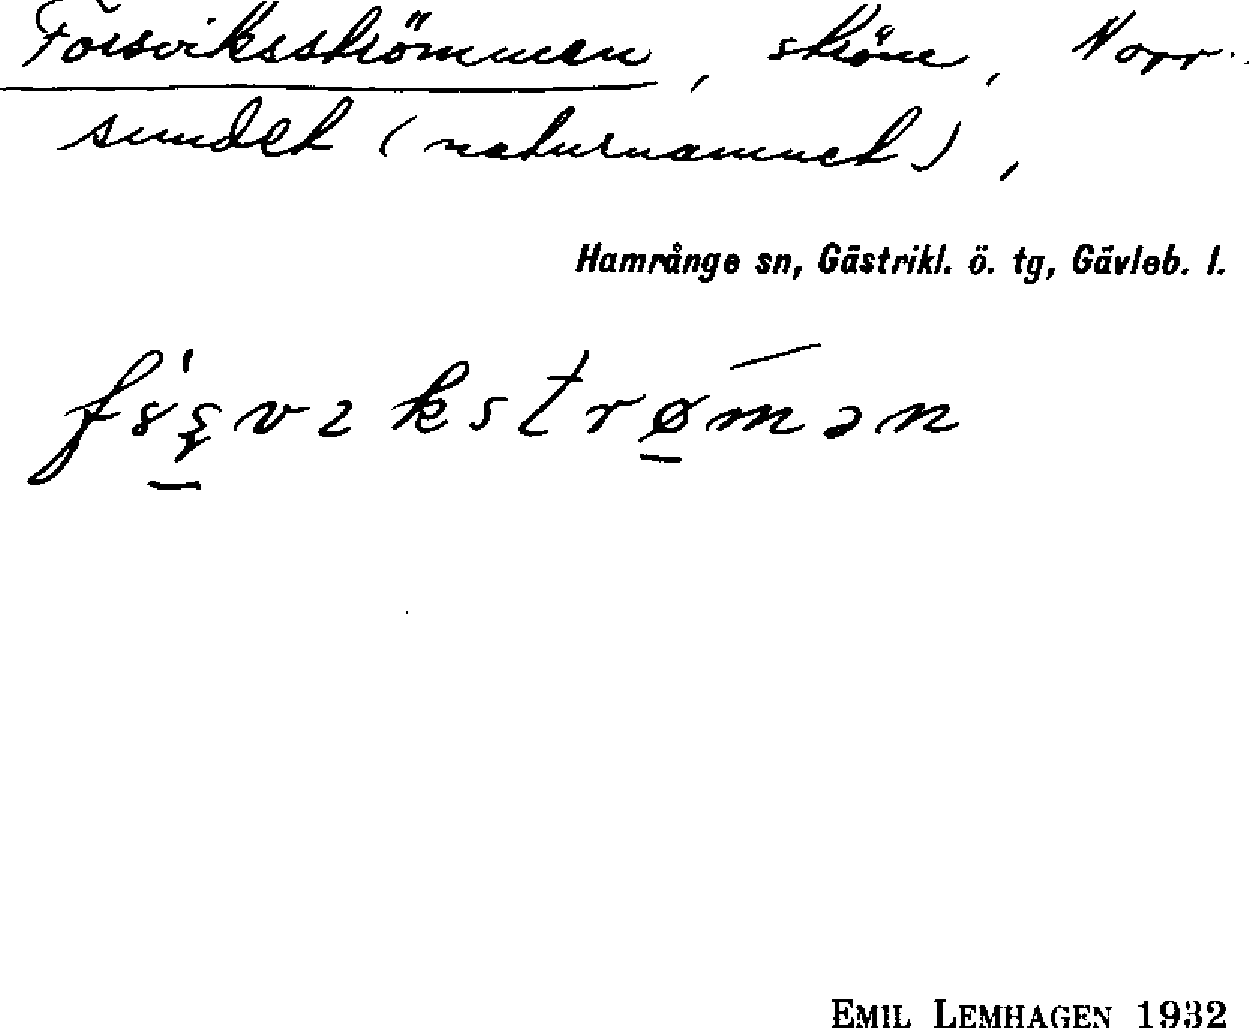 Forsviksströmmen, ström, Norr-
sundet (naturnamnet),
Hamrånge sn, Gästrikl. ö. tg, Gävleb. l.
EMIL LEMHAGEN 1932